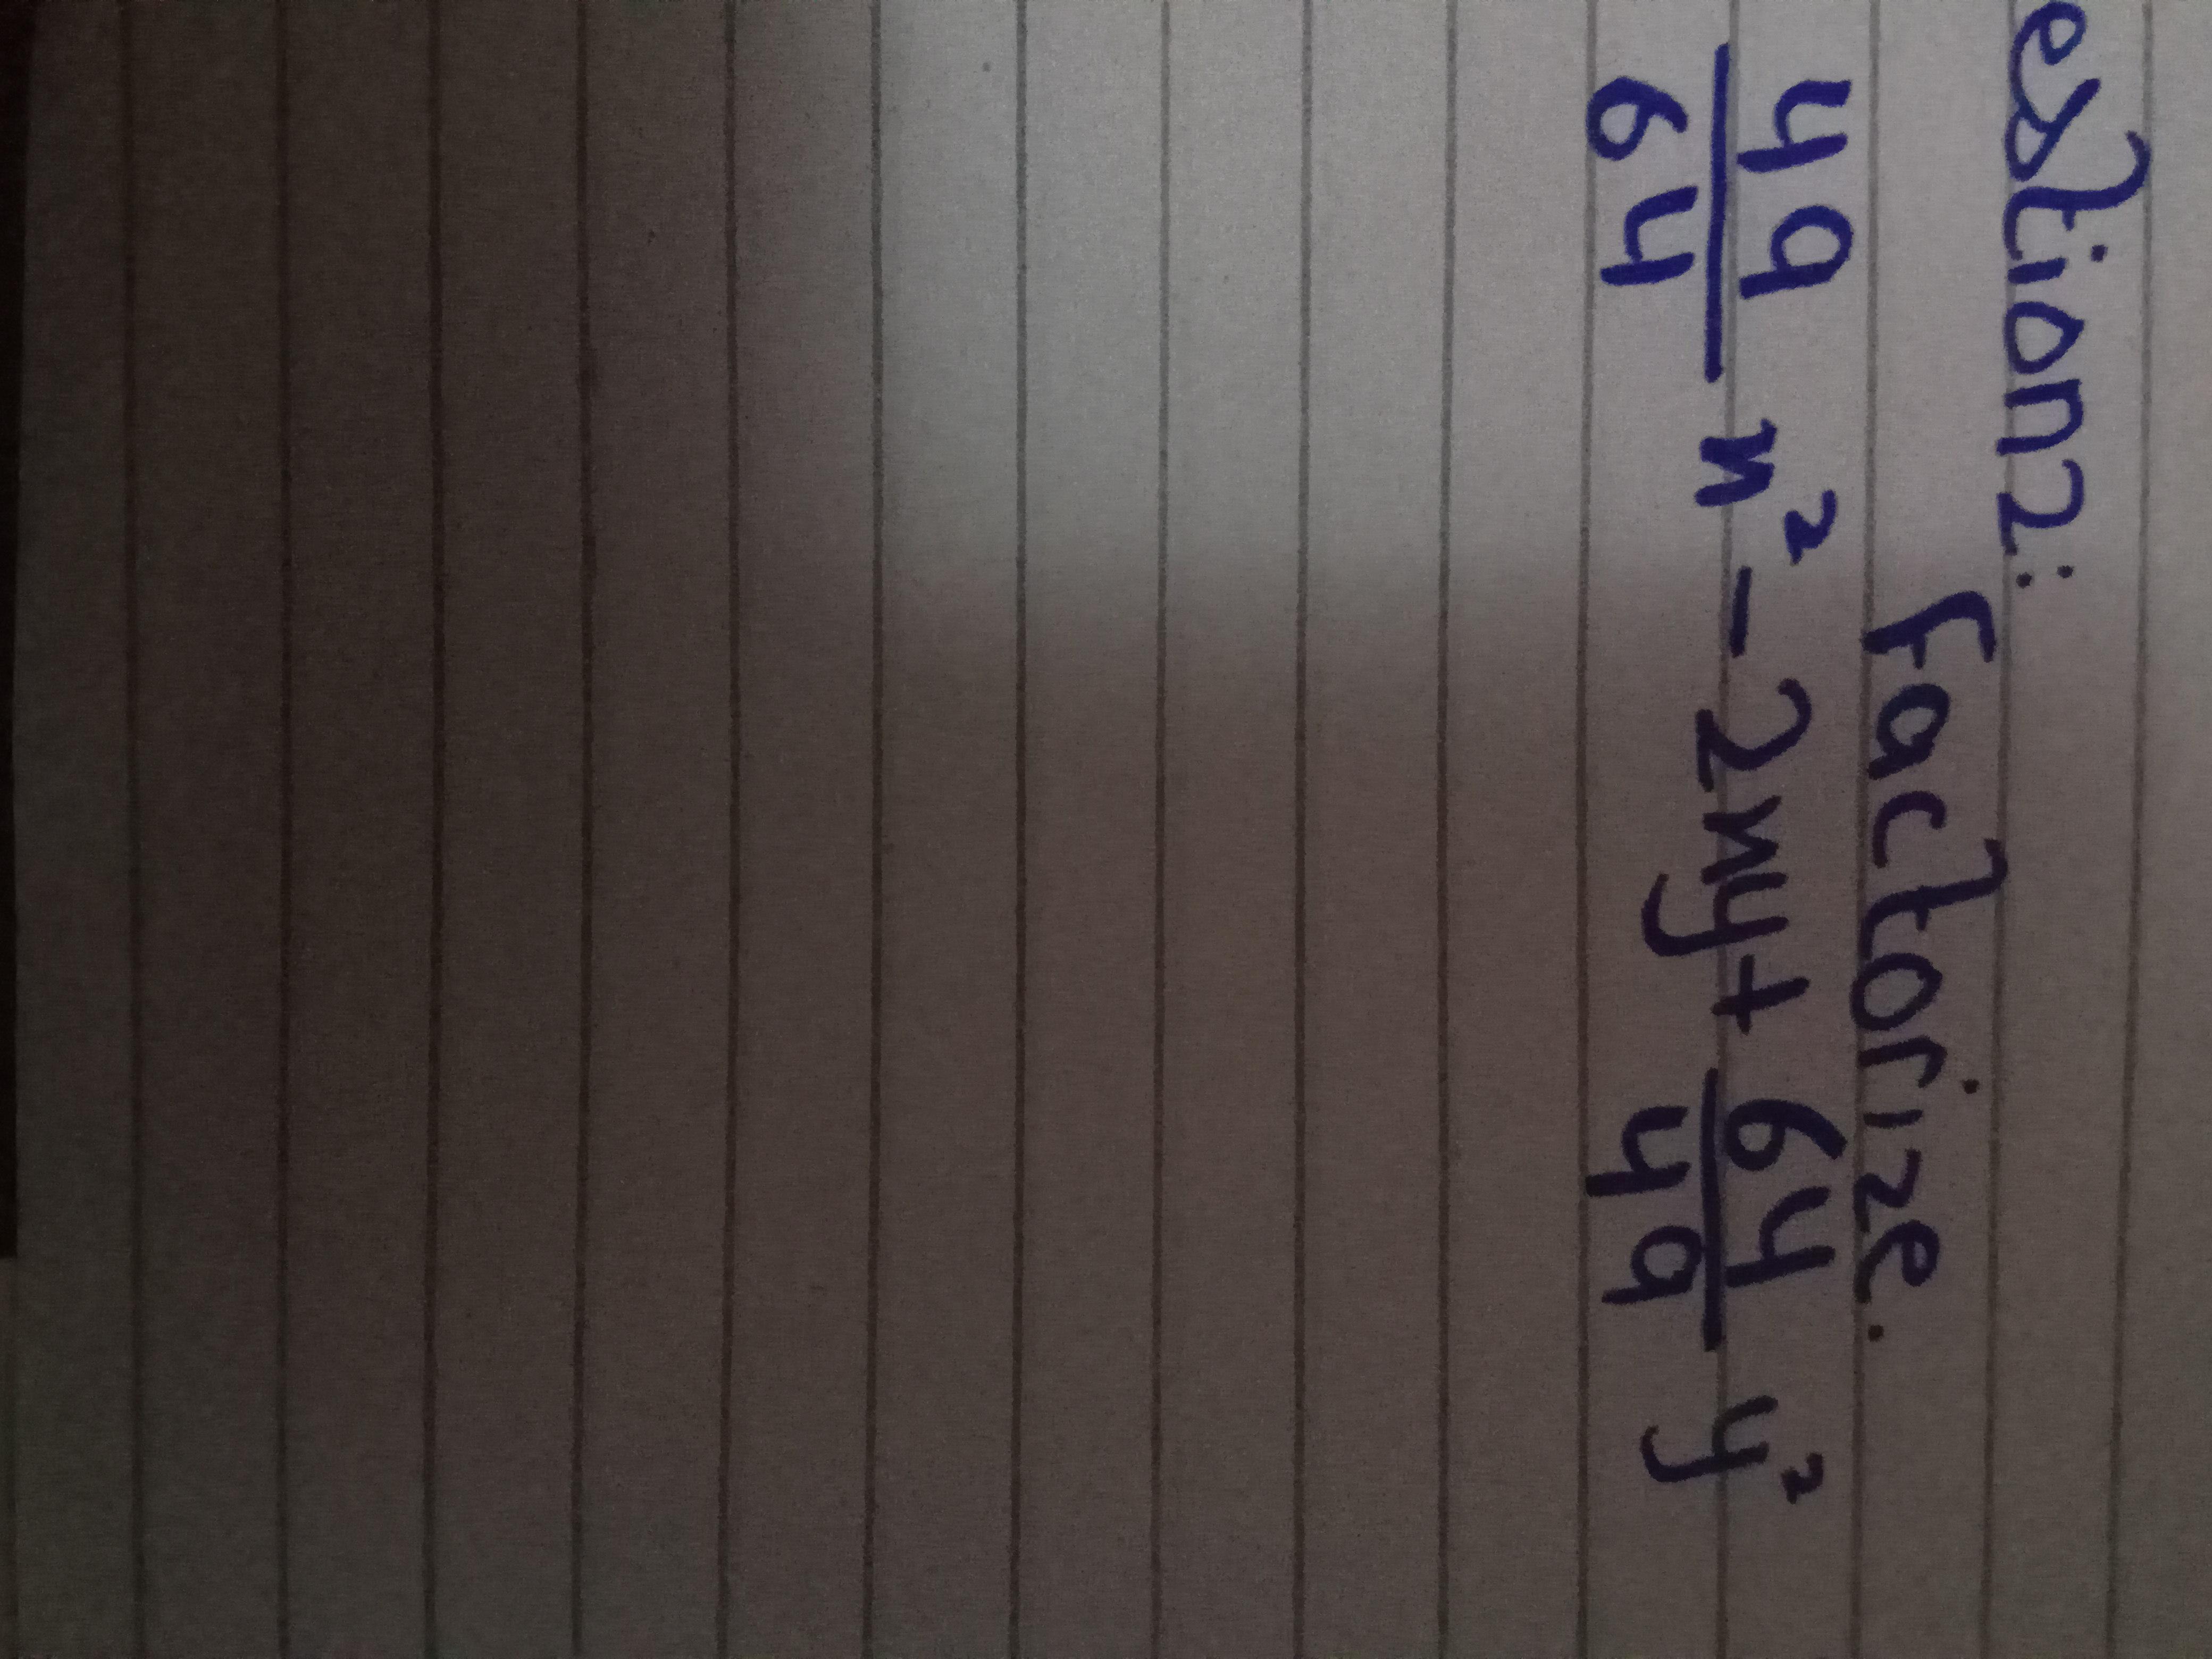 estion 2:
Factorize.
49/64 x² - 2xy + 64/49 y²